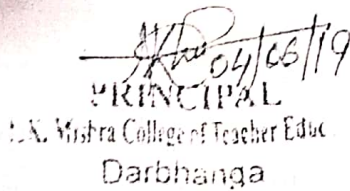 04/06/19
PRINCIPAL
Mishra College of Teacher Educ
Darbhanga